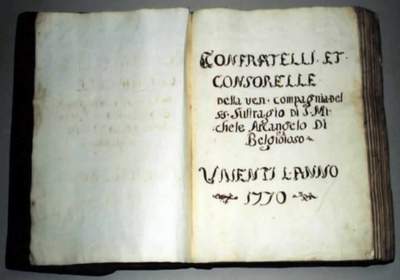 CONFRATELLI·ET·
CONSORELLE
della ven· compagnia del
ss· Suffragio di S·Mi-
chele Arcangelo Di
Belgioioso·
VIVENTI L'ANNO
1770·